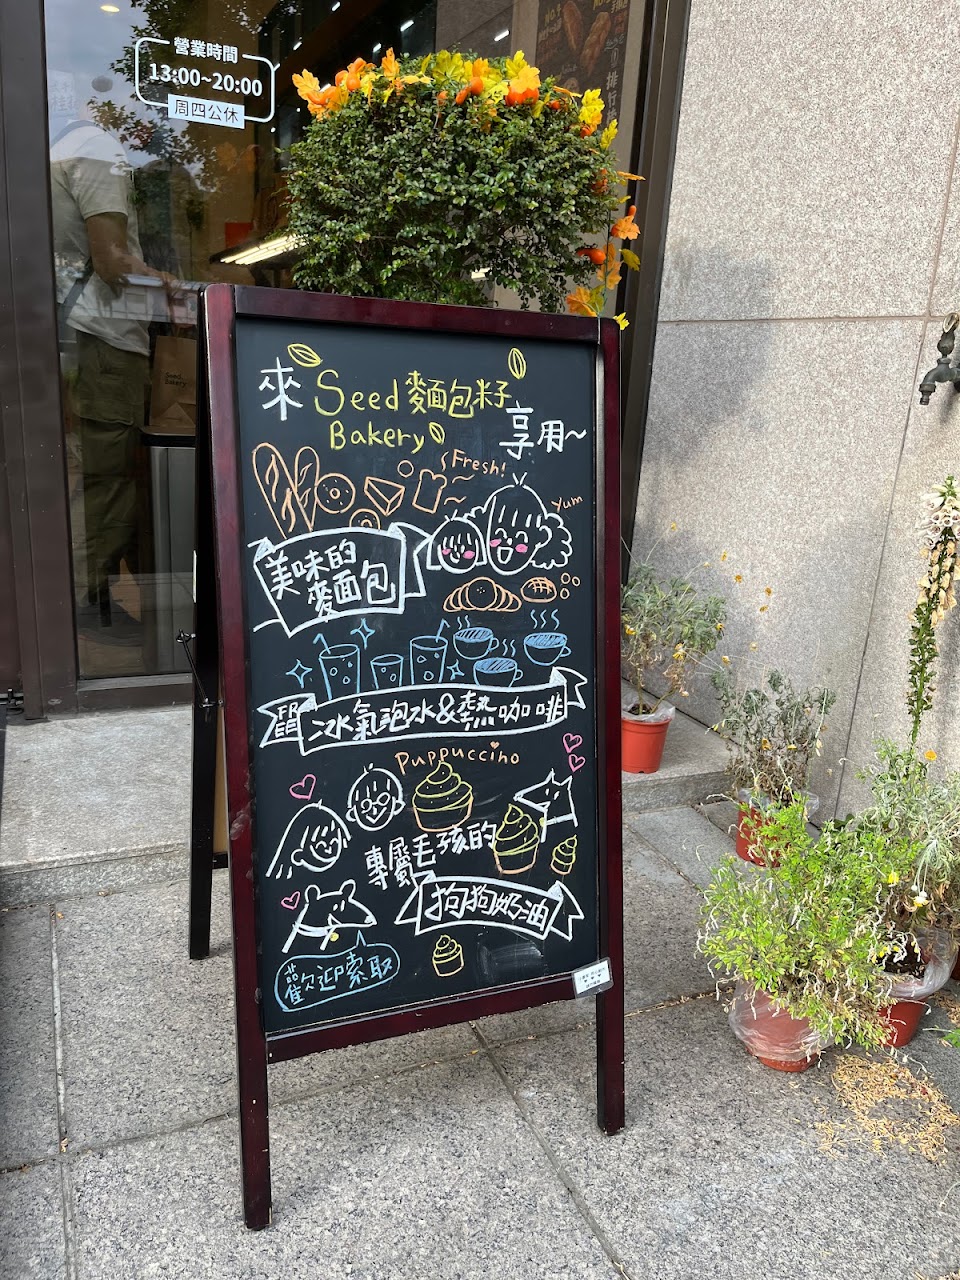 營業時間
13:00~20:00
周四公休
NO.
Seed
Bakery
來 Seed 麵包籽
Bakery
享用~
Fresh!
Yum
美味的
麵包
FREE
冰氣泡水&熱咖啡
Puppuccino
專屬毛孩的
狗狗奶油
歡迎索取